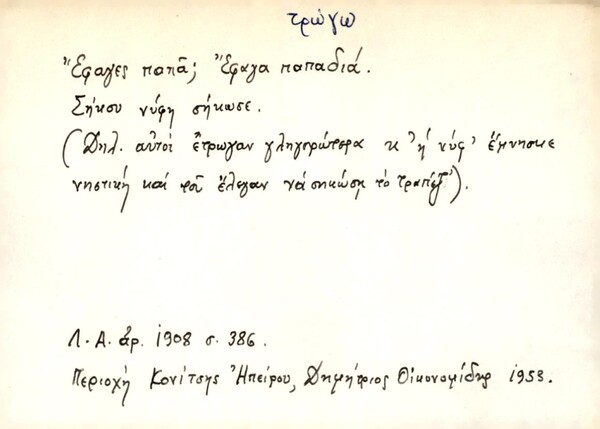 τρώγω
Ἔφαγες παπᾶ; Ἔφαγα παπαδιά.
Σήκου νύφη σήκωσε.
(Δηλ. αὐτοί ἔτρωγαν γληγορώτερα κ' ἡ νύφ' ἔμνησκε
νηστική καί τοῦ ἔλεγαν νά σηκώση τό τραπέζ').
Λ.Α. ἀρ. 1908 σ. 386.
Περιοχή Κονίτσης Ἠπείρου, Δημήτριος Οἰκονομίδης 1953.